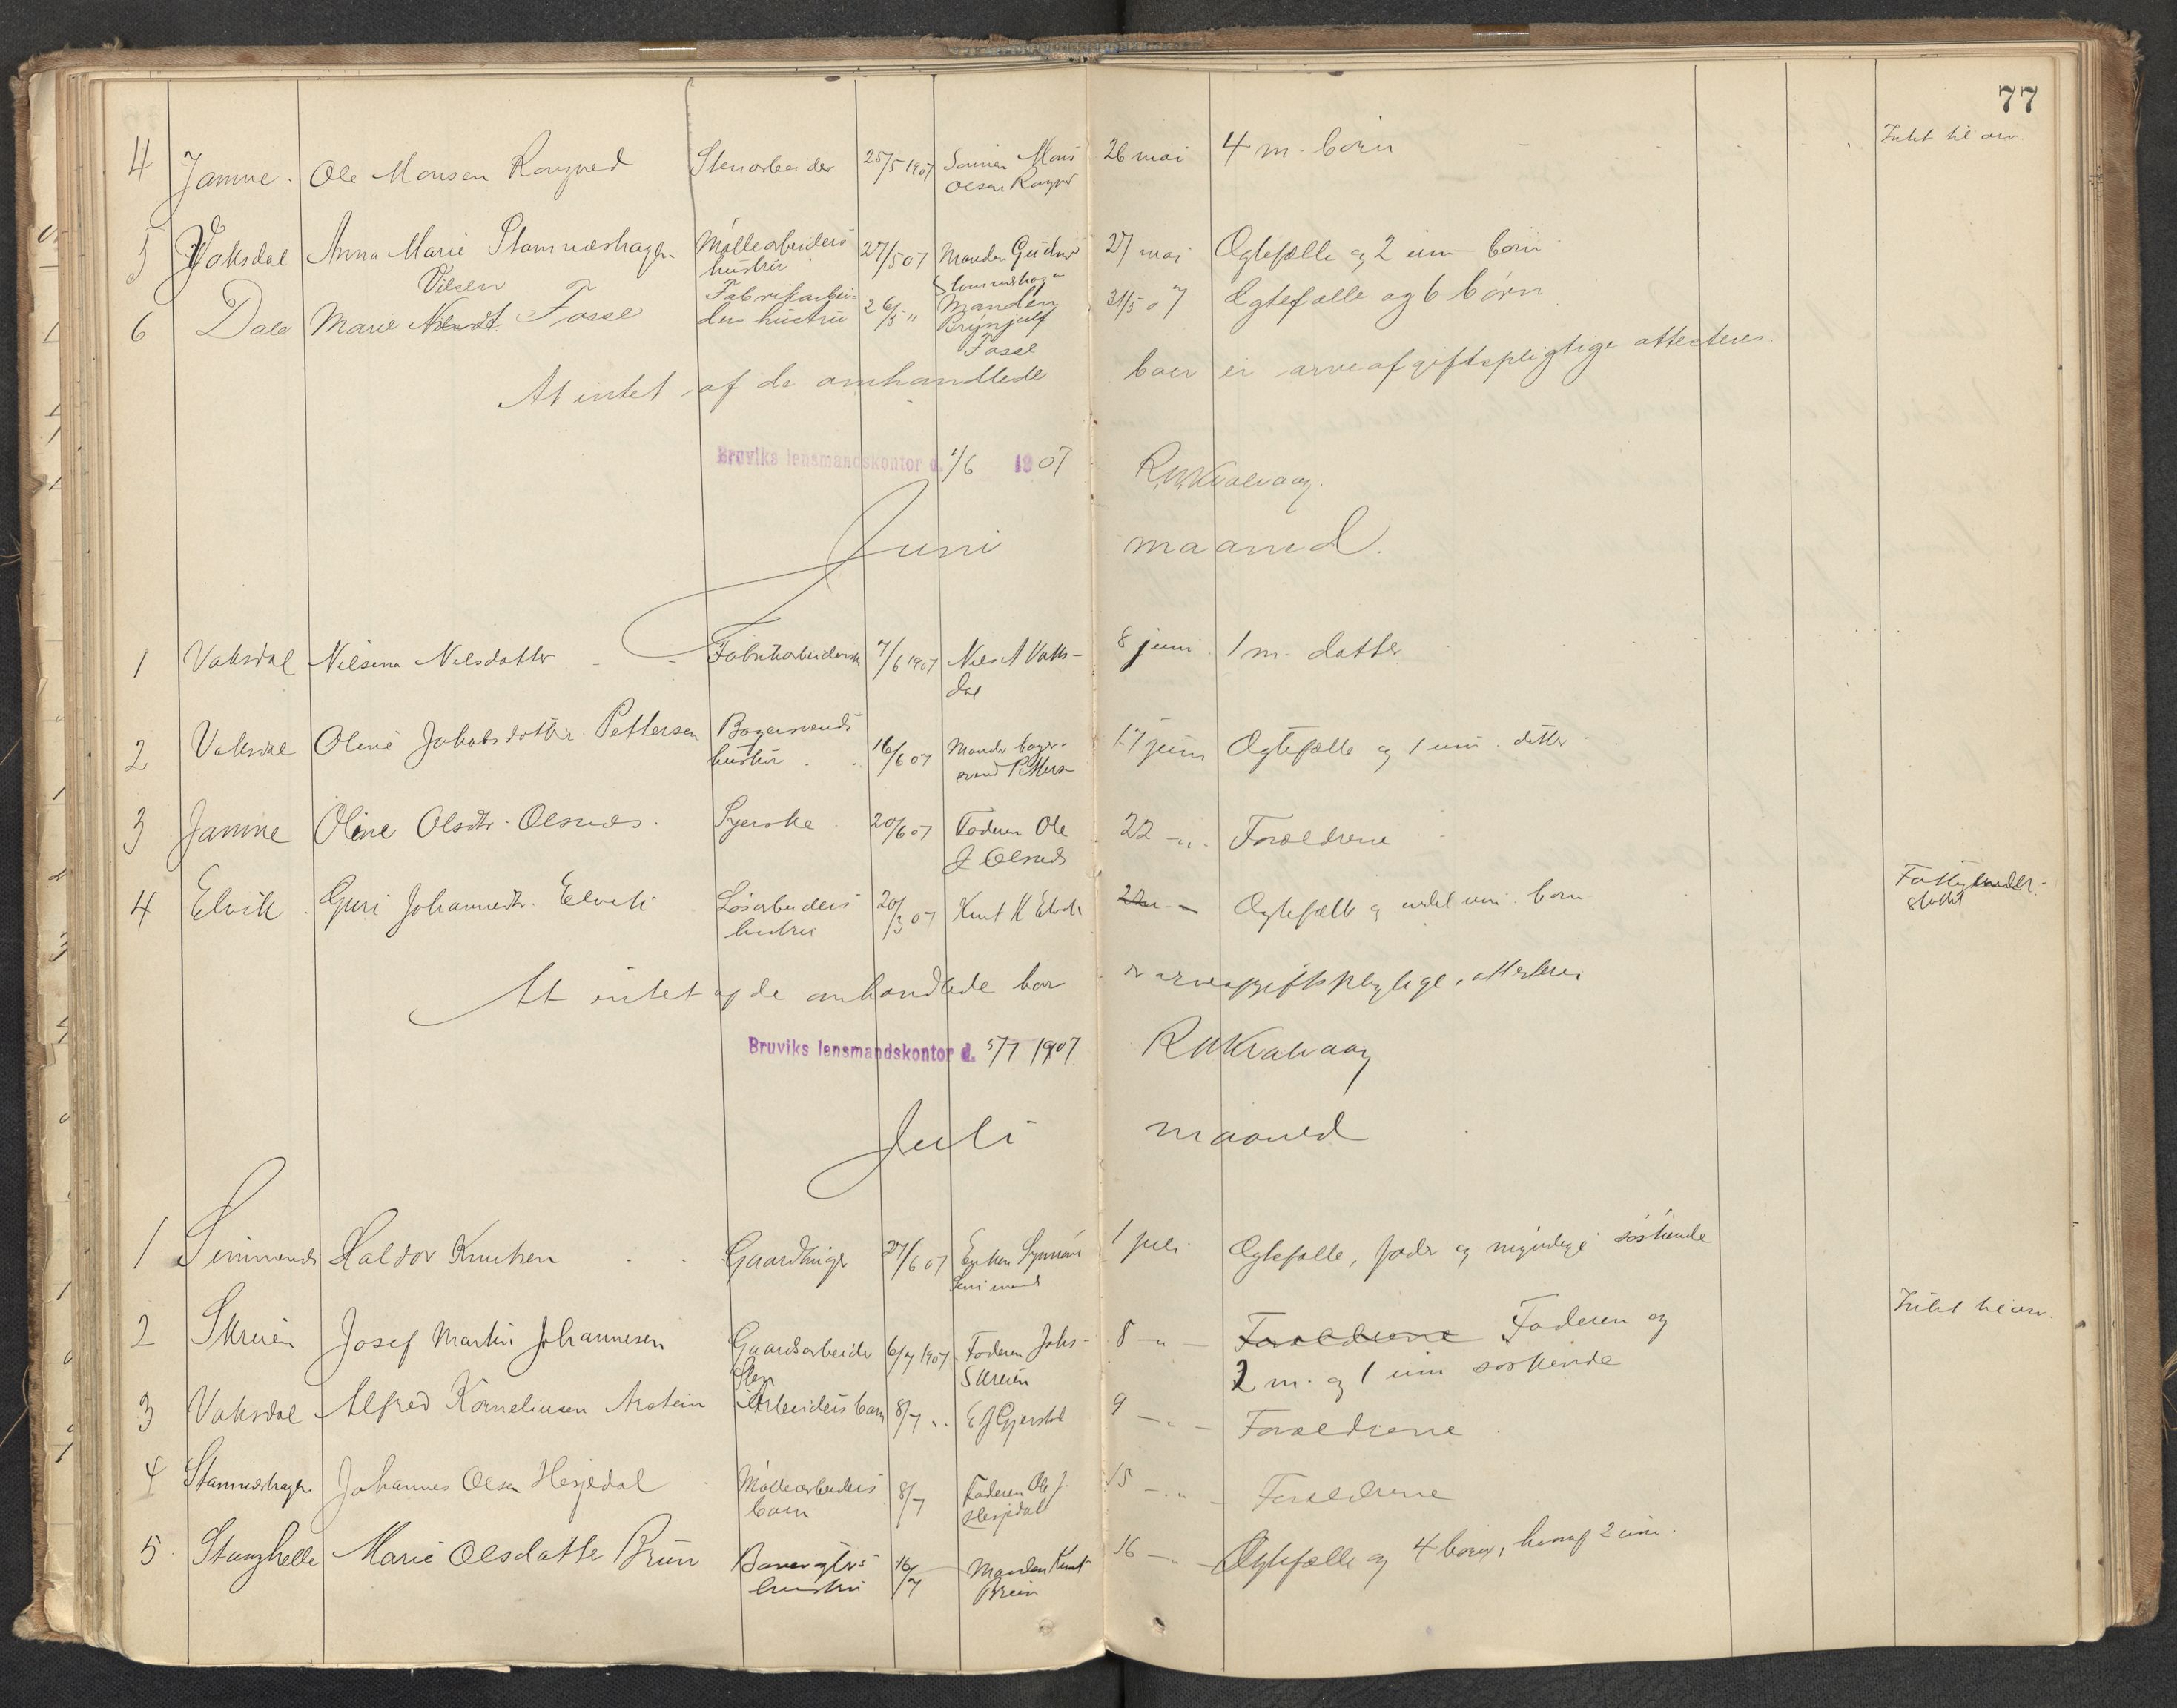 77
4 Jamne. Ole Monsen Stenarbeider 25/5 1907 Sønnen Mons 26 mai 4 m. børn Intet til arv
Olsen
5 Vaksdal Anna Marie Stamneshagen Møllearbeiders 27/5 07 Manden 27 mai Ægtefælle og 2 um børn
hustru
Vilsen
6 Dale Marie Fosse Fabrikarbei- 26/5 " Manden 31/5 07 Ægtefælle og 6 børn
ders hustru Brynjulf
Fosse
At intet af de omhandlede boer er arveafgiftspligtige attesteres.
Bruviks lensmandskontor d. 1/6 1907 Kvalvaag.
Juni maaned.
1 Vaksdal Nilsina Nilsdatter Fabrikarbeiderske 7/6 1907 Nils A Vaks- 8 juni 1 m. datter
dal
2 Vaksdal Oline Jakobsdatter Pettersen Bagersvends 16/6 07 Manden bager- 17 juni Ægtefælle og 1 um. datter
hustru svend Pettersen
3 Jamne Oline Olsdtr. Olsnes. Syerske 20/6 07 Faderen Ole 22 -"- Forældrene
J Olsnes
4 Elvik Guri Johannesdtr. Elvik Løsarbeiders 20/3 07 Knut K Elvik 22 Ægtefælle og um. børn Fattigunder-
hustru støttet
At intet af de omhandlede boer er arveafgiftspligtige, attesteres
Bruviks lensmandskontor d. 5/7 1907 Kvalvaag
Juli maaned
1 Simmenes Haldor Knutsen Gaardbruger 27/6 07 Enken Synnøve 1 juli Ægtefælle, fader og myndige søskende
Simmenes
2 Skreien Josef Martin Johannesen Gaardsarbeider 6/7 1907 Faderen Johs 8 -"- Forældrene Faderen og Intet til arv.
Skreien 2 m. og 1 um søskende
3 Vaksdal Alfred Korneliusen Arstein Arbeiders barn 8/7 " E J Gjerstad 9 -"- Forældrene
4 Stamneshagen Johannes Olsen Hesjedal Møllearbeiders 8/7 Faderen Ole J. 15 -"- Forældrene
barn Hesjedal
5 Stanghelle Marie Olsdatter Brun Banevogters 16/7 Manden Knut 16 -"- Ægtefælle og 4 børn, heraf 2 um.
hustru Brun